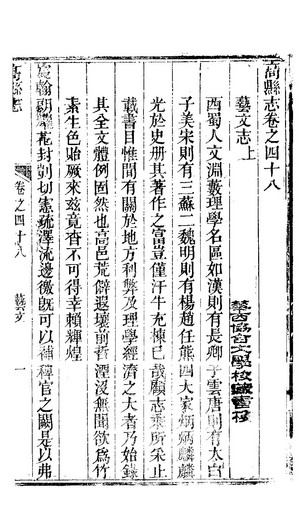 高縣志卷之四十八
藝文志上
華西協合大學校藏書移
西蜀人文淵藪理學名區如漢則有長卿子雲唐則有太白
子美宋則有三蘇二魏明則有楊趙任熊四大家炳炳麟麟
光於史册其著作之富豈僅汗牛充棟已哉顧志乘所采止
載書目惟間有關於地方利弊及理學經濟之大者乃始錄
其全文體例固然也高邑荒僻遐壤前哲湮沒無聞欲爲竹
素生色貽厥來兹竟杳不可得幸賴輝煌
翰朝驩花封剴切憲疏澤流邊徼旣可以補稗官之闕是以弗
高縣志
卷之四十八
藝文
一